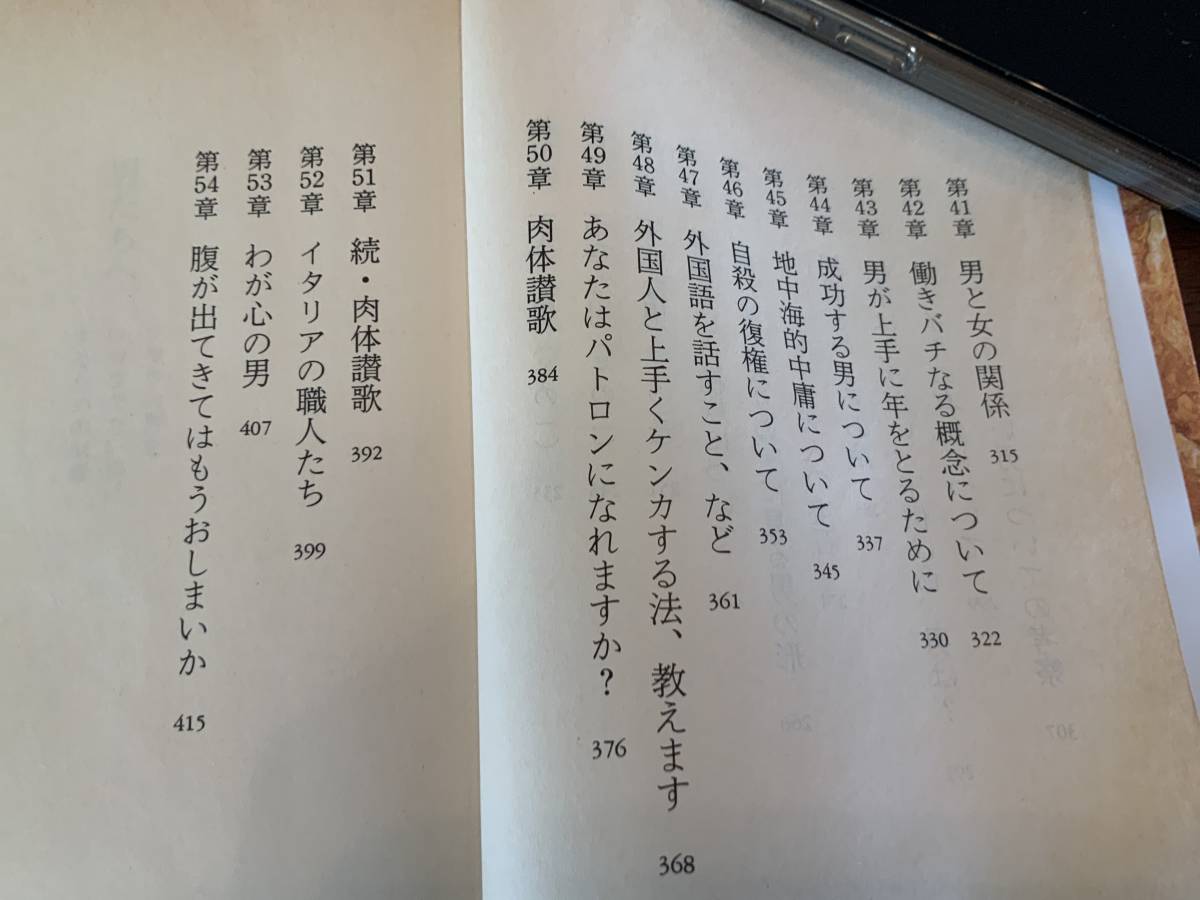 第41章 男と女の関係 315
第42章 働きバチなる概念について 322
第43章 男が上手に年をとるために 330
第44章 成功する男について 337
第45章 地中海的中庸について 345
第46章 自殺の復権について 353
第47章 外国語を話すこと、など 361
第48章 外国人と上手くケンカする法、教えます 368
第49章 あなたはパトロンになれますか? 376
第50章 肉体讃歌 384
第51章 続・肉体讃歌 392
第52章 イタリアの職人たち 399
第53章 わが心の男 407
第54章 腹が出てきてはもうおしまいか 415